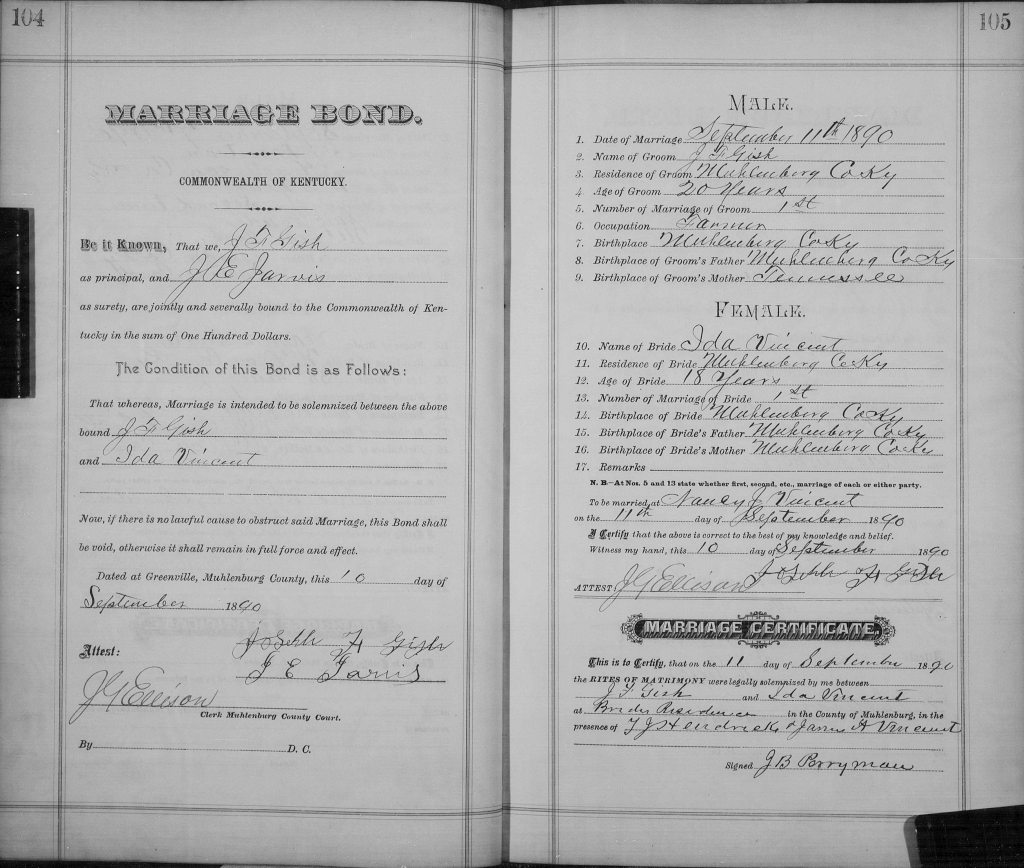 104
MARRIAGE BOND.
COMMONWEALTH OF KENTUCKY.
Be it Known, That we, J F Gish
as principal, and J E Jarvis
as surety, are jointly and severally bound to the Commonwealth of Ken-
tucky in the sum of One Hundred Dollars.
The Condition of this Bond is as Follows:
That whereas, Marriage is intended to be solemnized between the above
bound J F Gish
and Ida Vincent
Now, if there is no lawful cause to obstruct said Marriage, this Bond shall
be void, otherwise it shall remain in full force and effect.
Dated at Greenville, Muhlenburg County, this 10 day of
September 1890
Attest: F Gish
J E Jarvis
J G Ellison
Clerk Muhlenburg County Court.
By D. C.
105
MALE.
1. Date of Marriage September 11th 1890
2. Name of Groom J F Gish
3. Residence of Groom Muhlenberg Co Ky
4. Age of Groom 20 Years
5. Number of Marriage of Groom 1st
6. Occupation Farmer
7. Birthplace Muhlenberg Co Ky
8. Birthplace of Groom's Father Muhlenberg Co Ky
9. Birthplace of Groom's Mother Tennessee
FEMALE.
10. Name of Bride Ida Vincent
11. Residence of Bride Muhlenberg Co Ky
12. Age of Bride 18 Years
13. Number of Marriage of Bride 1st
14. Birthplace of Bride Muhlenberg Co Ky
15. Birthplace of Bride's Father Muhlenberg Co Ky
16. Birthplace of Bride's Mother Muhlenberg Co Ky
17. Remarks
N. B.—At Nos. 5 and 13 state whether first, second, etc., marriage of each or either party.
To be married at Nancy J Vincent
on the 11th day of September 1890
I Certify that the above is correct to the best of my knowledge and belief.
Witness my hand, this 10 day of September 1890
F Gish
ATTEST: J G Ellison
MARRIAGE CERTIFICATE.
This is to Certify, that on the 11 day of September 1890
the RITES OF MATRIMONY were legally solemnized by me between
J F Gish and Ida Vincent
at Brides Residence in the County of Muhlenburg, in the
presence of T J Hendricks & James A Vincent
Signed J B Perryman